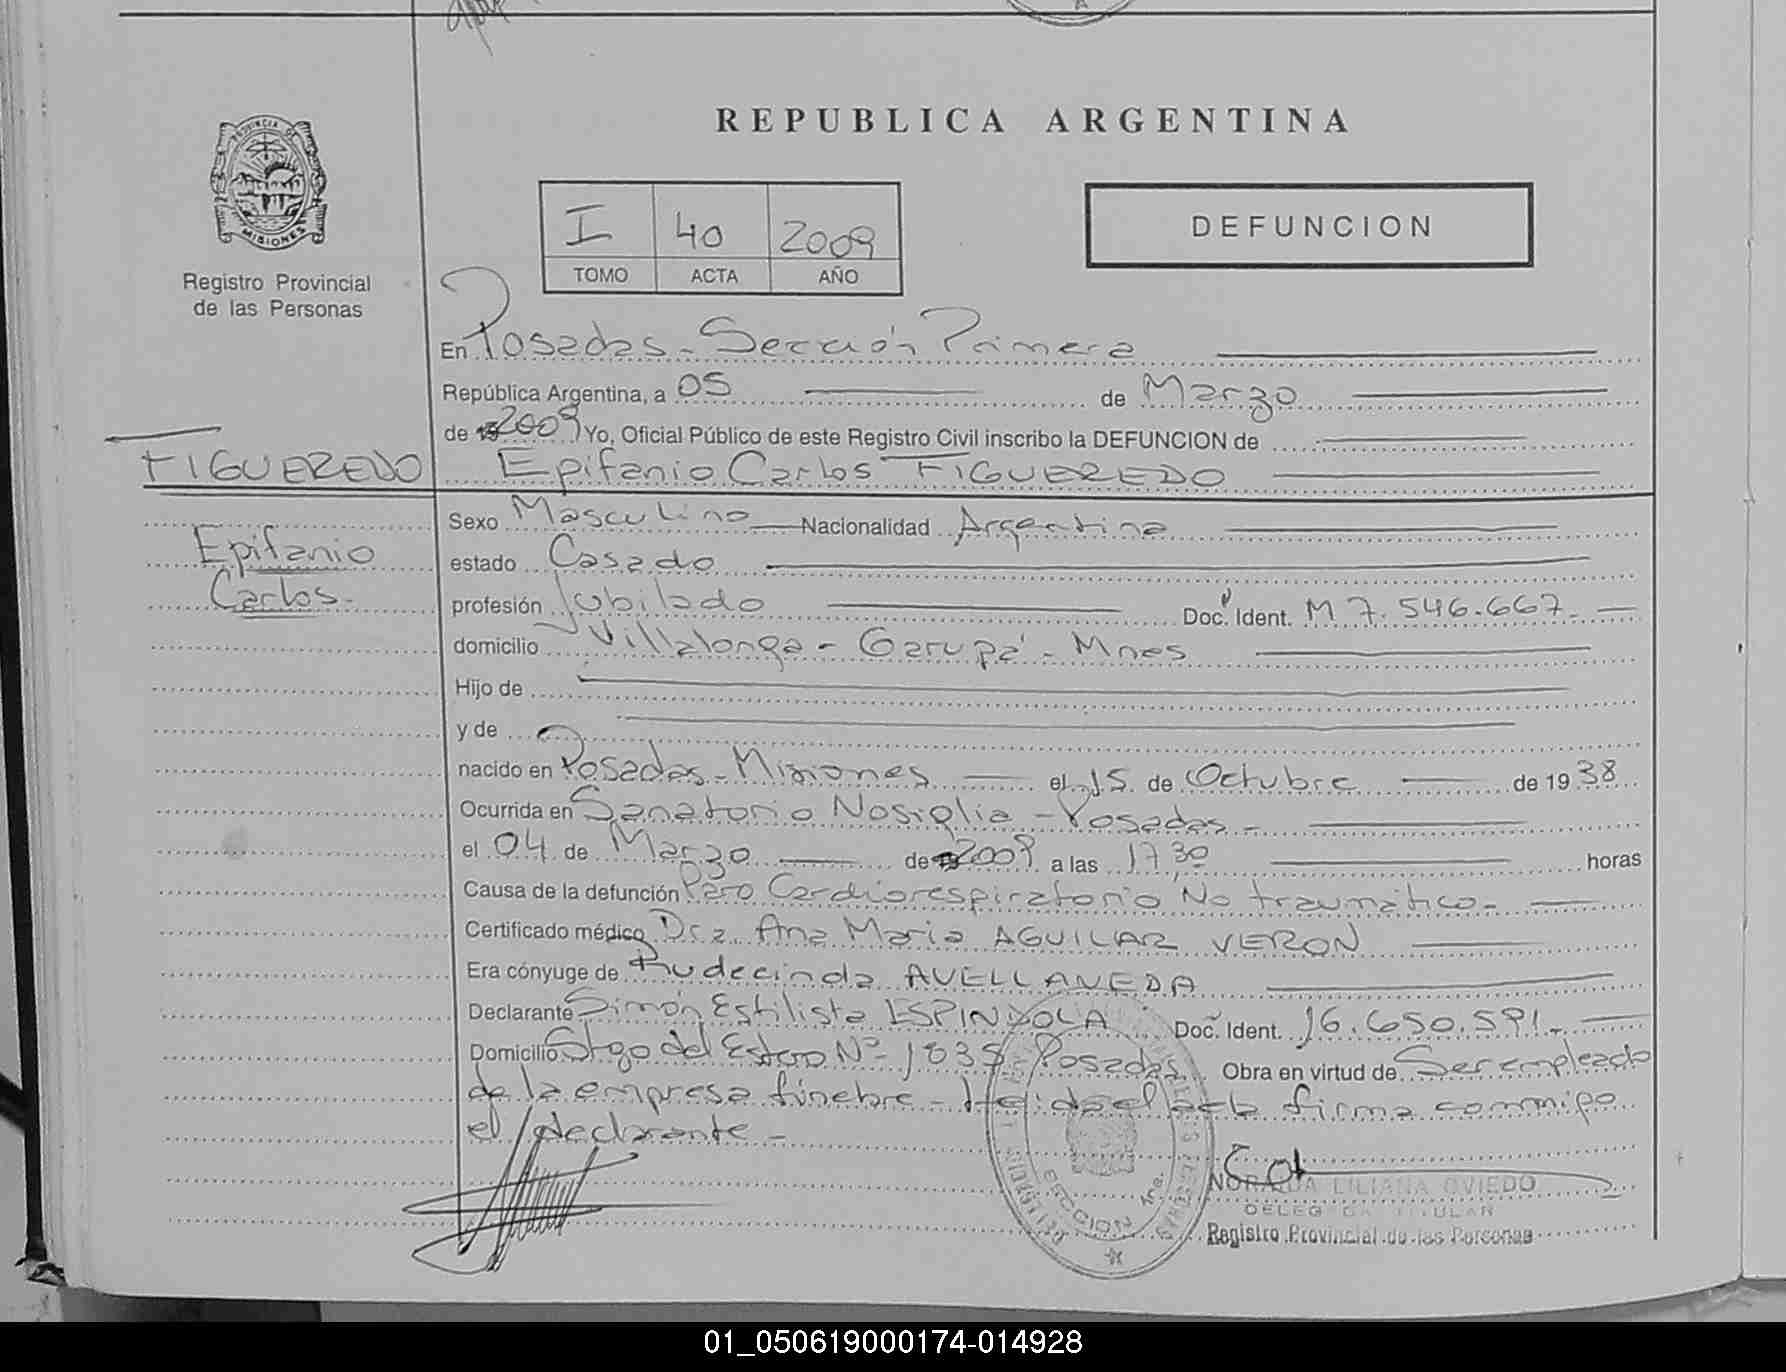 REPUBLICA ARGENTINA
PROVINCIA DE
MISIONES
Registro Provincial
de las Personas
I 40 2009
TOMO ACTA AÑO
DEFUNCION
En Posadas - Sección Primera
República Argentina, a 05 de Marzo
de 2009 Yo, Oficial Público de este Registro Civil inscribo la DEFUNCION de
FIGUEREDO
Epifanio Carlos FIGUEREDO
Epifanio
Carlos.-
Sexo Masculino Nacionalidad Argentina
estado Casado
profesión Jubilado Doc. Ident. M 7.546.667.-
domicilio Villalonga - Garupá - Mnes
Hijo de
y de
nacido en Posadas - Misiones el 15 de Octubre de 1938
Ocurrida en Sanatorio Nosiglia - Posadas -
el 04 de Marzo de 2009 a las 17,30 horas
Causa de la defunción Paro Cardiorespiratorio No traumático -
Certificado médico Dra. Ana Maria AGUILAR VERON
Era cónyuge de Rudecinda AVELLANEDA
Declarante Simón Estilista ESPINDOLA Doc. Ident. 16.650.591.-
Domicilio Stgo del Estero Nº 1835 Posadas Obra en virtud de Ser empleado
de la empresa fúnebre - Leída el acta firma conmigo
el declarante -
SECCION 1ra.
NORA LILIANA OVIEDO
DELEGADA TITULAR
Registro Provincial de las Personas
01_050619000174-014928